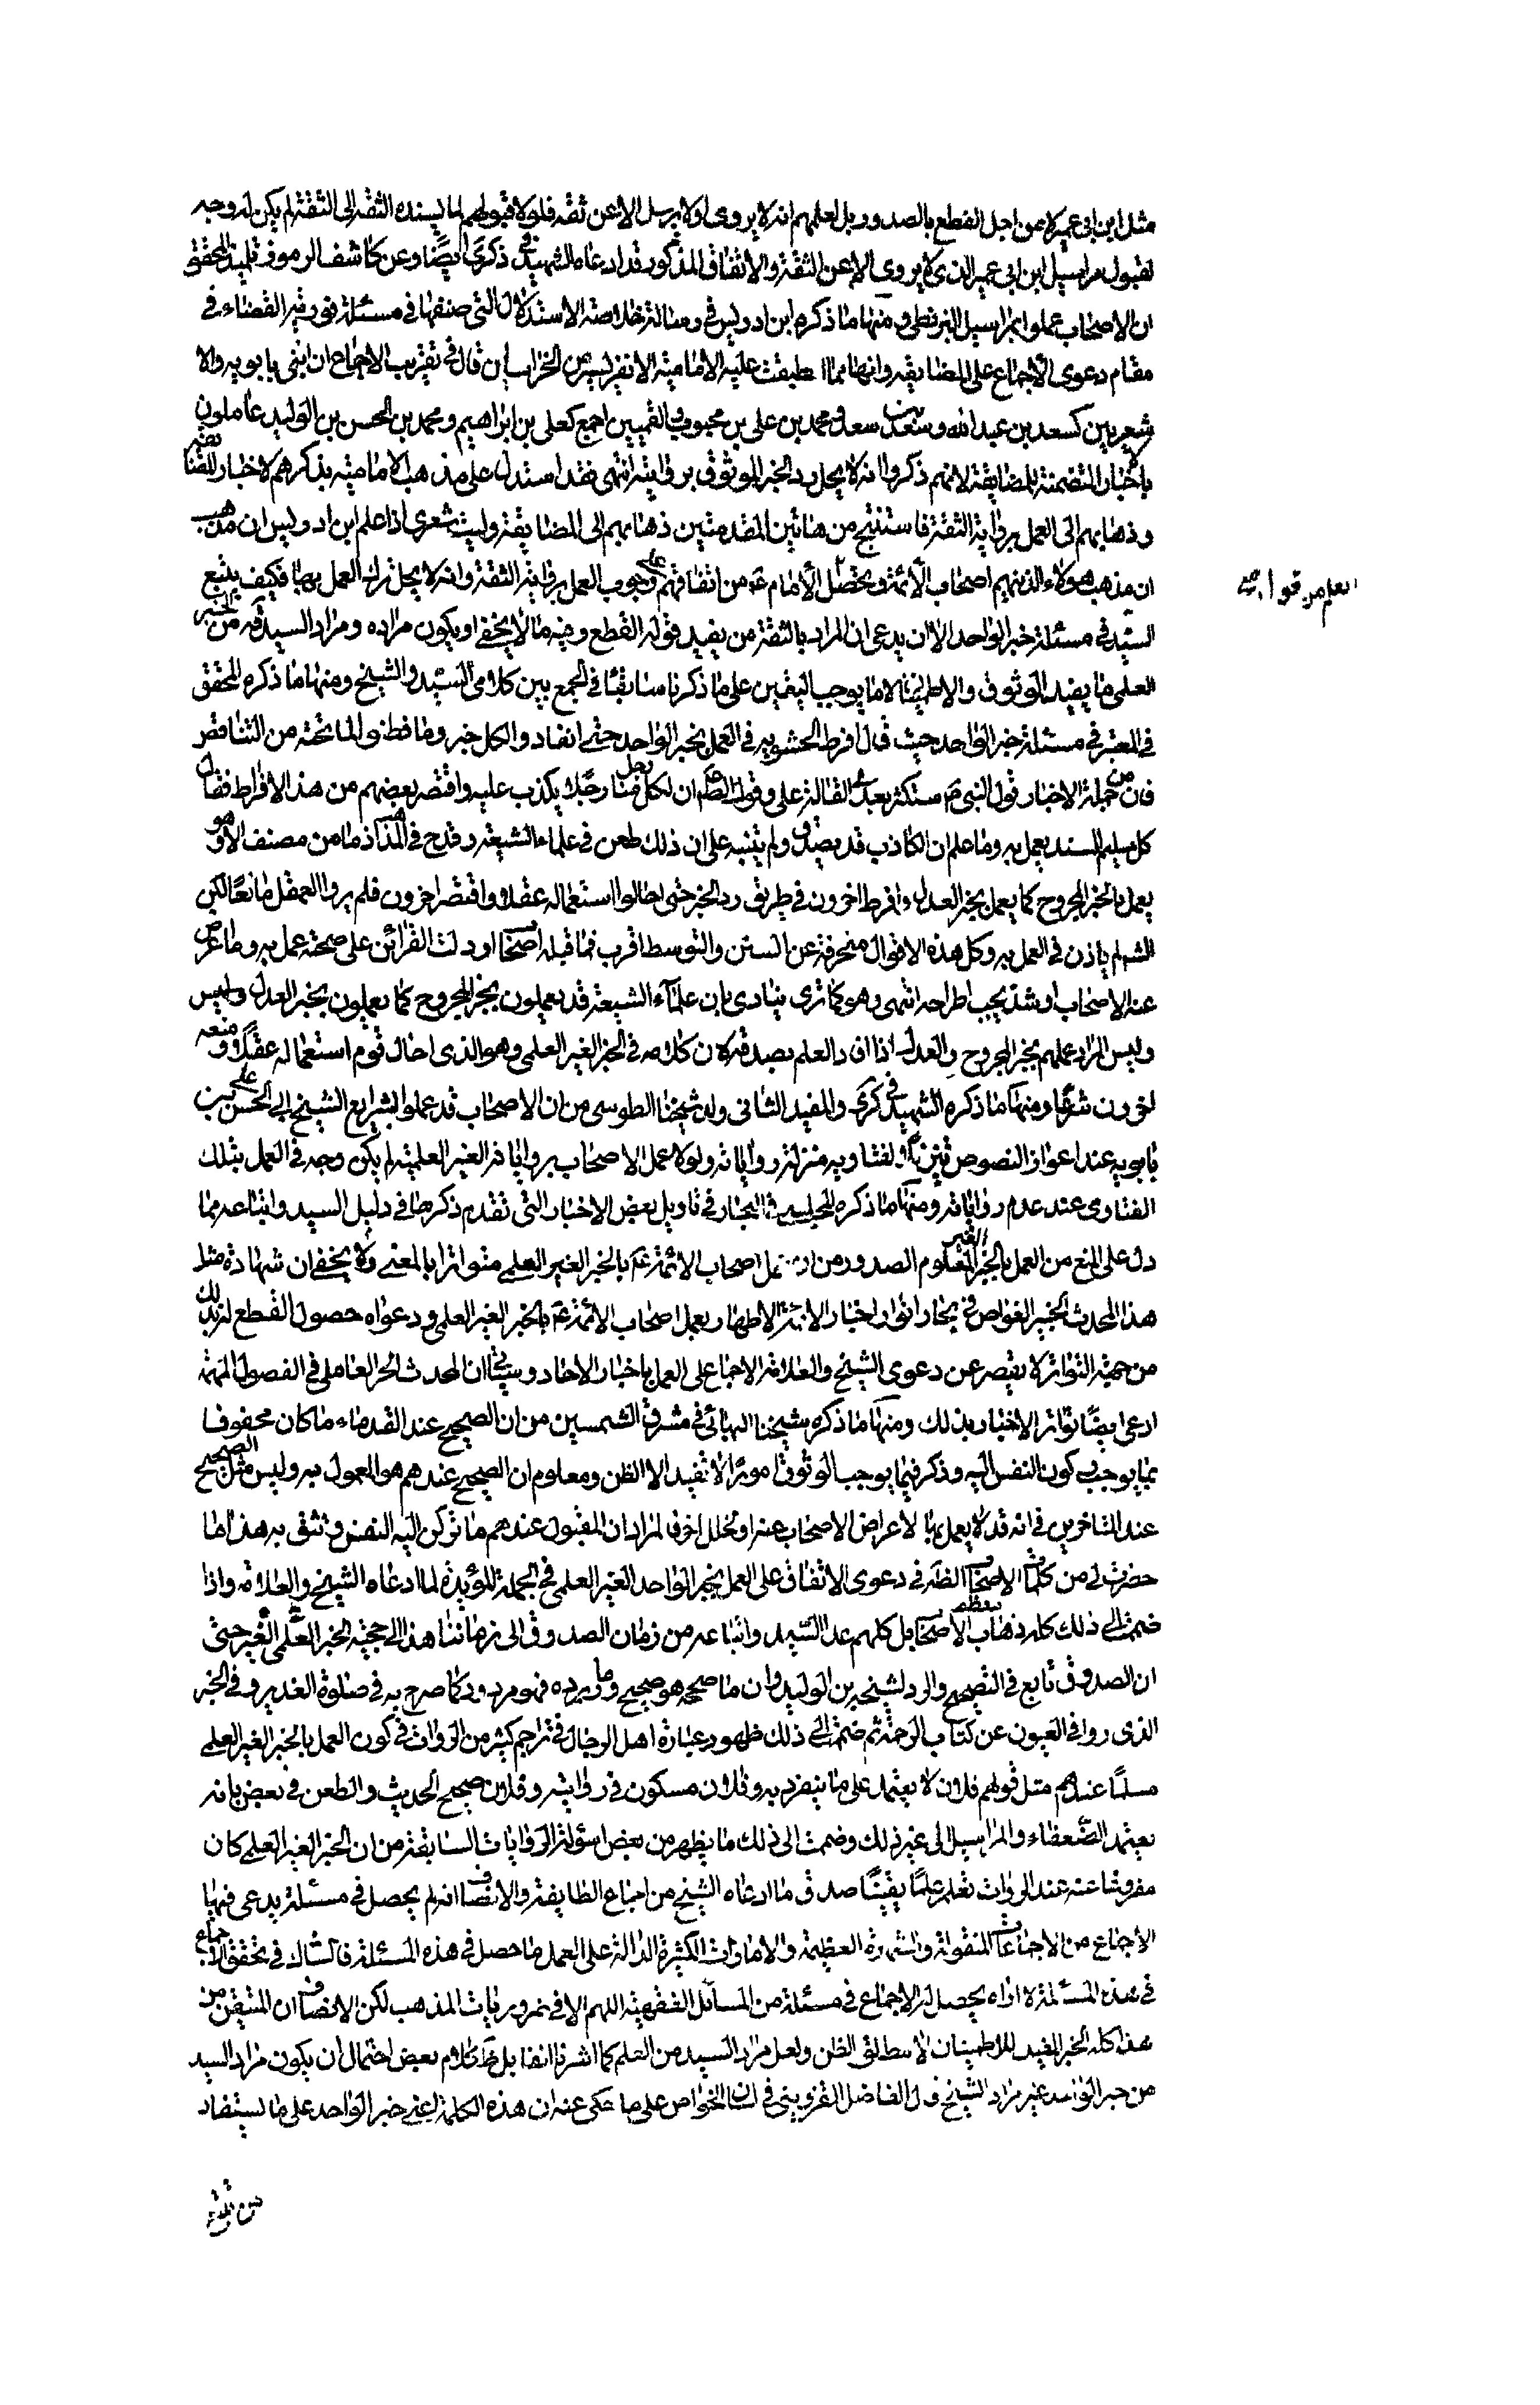 مثل ابن ابی عمیر لا من اجل القطع بالصدور بل لعلمهم انه لا یروی اولا یرسل الا عن ثقه فلولا قبولهم لما یسنده الثقه الی الثقة لم یکن له وجه
لقبول مراسیل ابن ابی عمیر الذی لا یروی الا عن الثقة والاتفاق المذکور قد ادعاه الشهید فی ذکری ایضًا وعن کاشف الرموز تلمیذ المحقق
ان الاصحاب عملوا بمراسیل البزنطی ومنها ما ذکره ابن ادریس فی رسالة خلاصة الاستدلال التی صنفها فی مسئلة فوریة القضاء فی
مقام دعوی الاجماع علی المضایقه وانها مما اطبقت علیه الامامیة الا نفر یسیر من الخراسانیین قال فی تقریب الاجماع ان ابنی بابویه والا
شعریین کسعد بن عبد الله وسعد بن سعد ومحمد بن علی بن محبوب والقمیین اجمع کعلی بن ابراهیم ومحمد بن الحسن بن الولید عاملون
بالاخبار المتضمنة للمضایقة لانهم ذکروا انه لا یحل رد الخبر الموثوق بروایته انتهی فقد استدل علی مذهب الامامیة بذکرهم لاخبار المضایقة
وذهابهم الی العمل بروایة الثقة فاستنتج من هاتین المقدمتین ذهابهم الی المضایقة ولیت شعری اذا علم ابن ادریس ان مذهب
ان مذهب هولاء الذینهم اصحاب الأئمة ویحصل العلم من قول الإمام ع من اتفاقهم علی وجوب العمل بروایة الثقة وانه لا یحل ترک العمل بها فکیف یتبع
السید فی مسئلة خبر الواحد الا ان یدعی ان المراد بالثقة من یفید قوله القطع وفیه ما لا یخفی او یکون مراده ومراد السید قده من الخبر
العلمی ما یفید الوثوق والاطمینان لا ما یوجب الیقین علی ما ذکرنا سابقًا فی الجمع بین کلامی السید والشیخ ومنها ما ذکره المحقق
فی المعتبر فی مسئلة خبر الواحد حیث قال افرط الحشویه فی العمل بخبر الواحد حتی انقادوا لکل خبر وما فطنوا لما تحته من التناقض
فان من جملة الاخبار قول النبی ص ستکثر بعدی القالة علی وقول الصادق ع ان لکل رجل منا رجلا یکذب علیه واقتصر بعضهم من هذا الافراط فقال
کل سلیم السند یعمل به وما علم ان الکاذب قد یصدق ولم یتنبه علی ان ذلک طعن فی علماء الشیعة وقدح فی المذهب اذ ما من مصنف الا وهو
یعمل بالخبر المجروح کما یعمل بخبر العدل وافرط اخرون فی طریق رد الخبر حتی احالوا استعماله عقلا واقتصر اخرون فلم یروا العقل مانعًا لکن
الشرع لم یاذن فی العمل به وکل هذه الاقوال منحرفة عن السنن والتوسط اقرب فما قبله الاصحاب او دلت القرائن علی صحته عمل به وما اعرض
عنه الاصحاب او شذ یجب اطراحه انتهی وهو کما تری ینادی بان علماء الشیعة قد یعملون بخبر المجروح کما یعملون بخبر العدل ولیس
ولیس المراد عملهم بخبر المجروح والعدل اذا افاد العلم بصدقه لان کلامه فی الخبر الغیر العلمی وهو الذی احال قوم استعماله عقلًا ومنعه
اخرون شرعًا ومنها ما ذکره الشهید فی ذکری والمفید الثانی ولد شیخنا الطوسی من ان الاصحاب قد عملوا بشرایع الشیخ ابی الحسن علی بن
بابویه عند اعواز النصوص تنزیلًا لفتاویه منزلة روایاته ولولا عمل الاصحاب بروایاته الغیر العلمیة لم یکن وجه فی العمل بتلک
الفتاوی عند عدم روایاته ومنها ما ذکره المجلسی فی البحار فی تاویل بعض الاخبار التی تقدم ذکرها فی دلیل السید واتباعه مما
دل علی المنع من العمل بالخبر الغیر المعلوم الصدور من ان عمل اصحاب الائمة ع بالخبر الغیر العلمی متواتر بالمعنی ولا یخفی ان شهادة مثل
هذا المحدث الخبیر الغواص فی بحار انوار اخبار الائمة الاطهار بعمل اصحاب الائمة ع بالخبر الغیر العلمی ودعواه حصول القطع له بذلک
من جهة التواتر لا یقصر عن دعوی الشیخ والعلامة الاجماع علی العمل باخبار الاحاد وسیاتی ان المحدث الحر العاملی فی الفصول المهمة
ادعی ایضًا تواتر الاخبار بذلک ومنها ما ذکره شیخنا البهائی فی مشرق الشمسین من ان الصحیح عند القدماء ما کان محفوفا
بما یوجب رکون النفس الیه وذکر فیما یوجب الوثوق امورًا لا تفید الا الظن ومعلوم ان الصحیح عندهم هو المعمول به ولیس مثل الصحیح
عند المتاخرین فی انه قد لا یعمل به الا لاعراض الاصحاب عنه او لخلل اخر فالمراد ان المقبول عندهم ما ترکن الیه النفس وتثق به هذا ما
حضرنی من کلمات الاصحاب الظاهرة فی دعوی الاتفاق علی العمل بخبر الواحد الغیر العلمی فی الجملة المؤیدة لما ادعاه الشیخ والعلامة واذا
ضممت الی ذلک کله ذهاب معظم الاصحاب بل کلهم عدا السید واتباعه من زمان الصدوق الی زماننا هذا الی حجیة الخبر العلمی الغیر حتی
ان الصدوق تابع فی التصحیح والرد لشیخه ابن الولید وان ما صححه هو صحیح وما رده فهو مردود کما صرح به فی صلوة الغدیر وفی الخبر
الذی رواه فی العیون عن کتاب الرحمة ثم ضممت الی ذلک ظهور عبارة اهل الرجال فی تراجم کثیر من الرواة فی کون العمل بالخبر الغیر العلمی
مسلمًا عندهم مثل قولهم فلان لا یعتمد علی ما ینفرد به وفلان مسکون فی روایته وفلان صحیح الحدیث والطعن فی بعض بانه
یعتمد الضعفاء والمراسیل الی غیر ذلک وضممت الی ذلک ما یظهر من بعض اسؤلة الروایات السابقة من ان الخبر الغیر العلمی کان
مفروغا عنه عند الرواة تعلم علمًا یقینًا صدق ما ادعاه الشیخ من اجماع الطایفة والانصاف انه لم یحصل فی مسئلة یدعی فیها
الاجماع من الاجماعات المنقولة والشهرة العظیمة والامارات الکثیرة الدالة علی العمل ما حصل فی هذه المسئلة فالشاک فی تحقق الاجماع
فی هذه المسئلة لا اراه یحصل له الاجماع فی مسئلة من المسائل الفقهیة اللهم الا فی ضروریات المذهب لکن الانصاف ان المتیقن من
هذا کله الخبر المفید للاطمینان لا مطلق الظن ولعل مراد السید من العلم کما اشرنا انفا بل ظاهر کلام بعض احتمال ان یکون مراد السید
من خبر الواحد غیر مراد الشیخ قال الفاضل القزوینی فی لسان الخواص علی ما حکی عنه ان هذه الکلمة اعنی خبر الواحد علی ما یستفاد